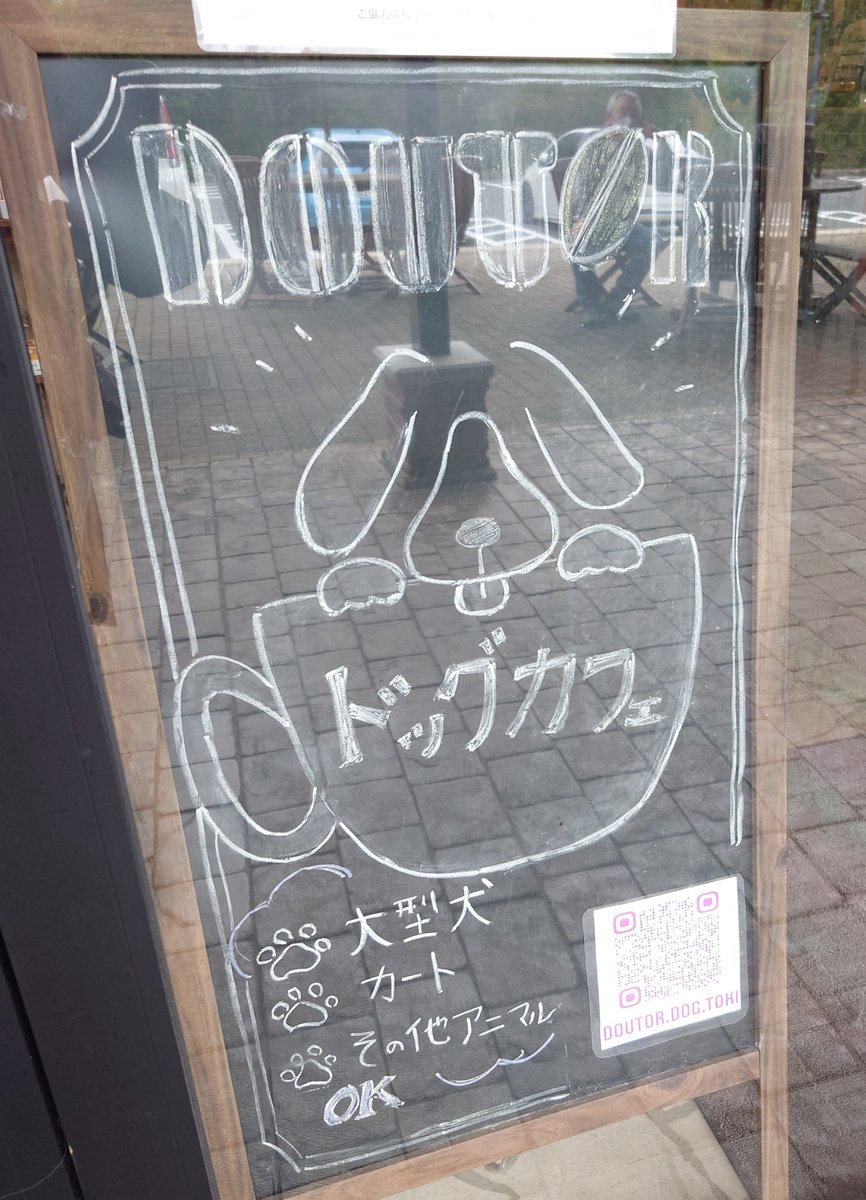 DOUTOR
ドッグカフェ
大型犬
カート
その他アニマル
OK
DOUTOR.DOG.TOKI